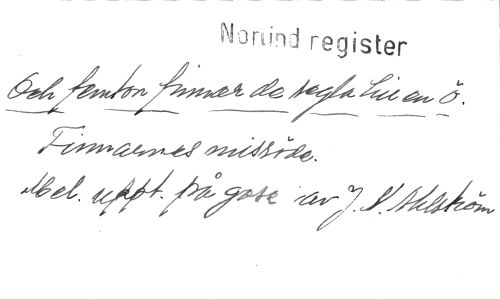 Norlind register
Och femton finnar de segla till en ö.
Finnarnes missöde.
Mel. uppt. på gose av J. N. Ahlström